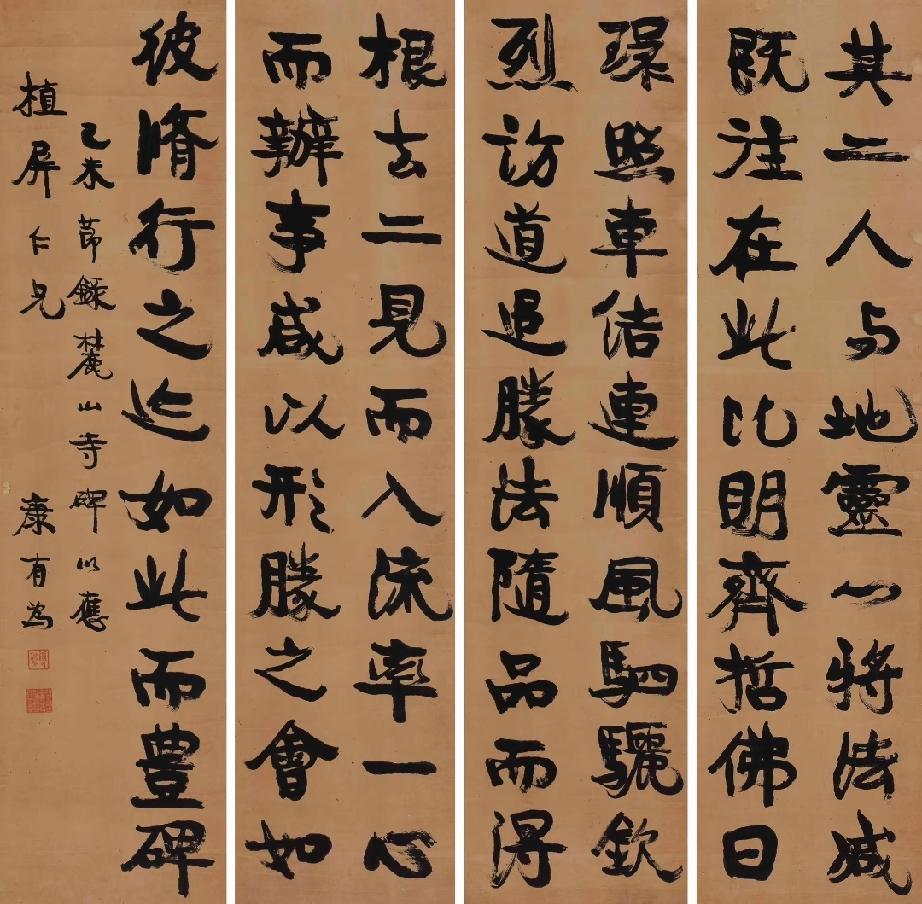 其二人与地靈心將法滅
既注在此比明齊哲佛日
環照車結連順風駟驪欽
烈訪道追勝法隨品而得
根去二見而入流率一心
而辦事咸以形勝之會如
彼脩行之迹如此而豊碑
乙未節錄麓山寺碑以應
植屏仁兄
康有為